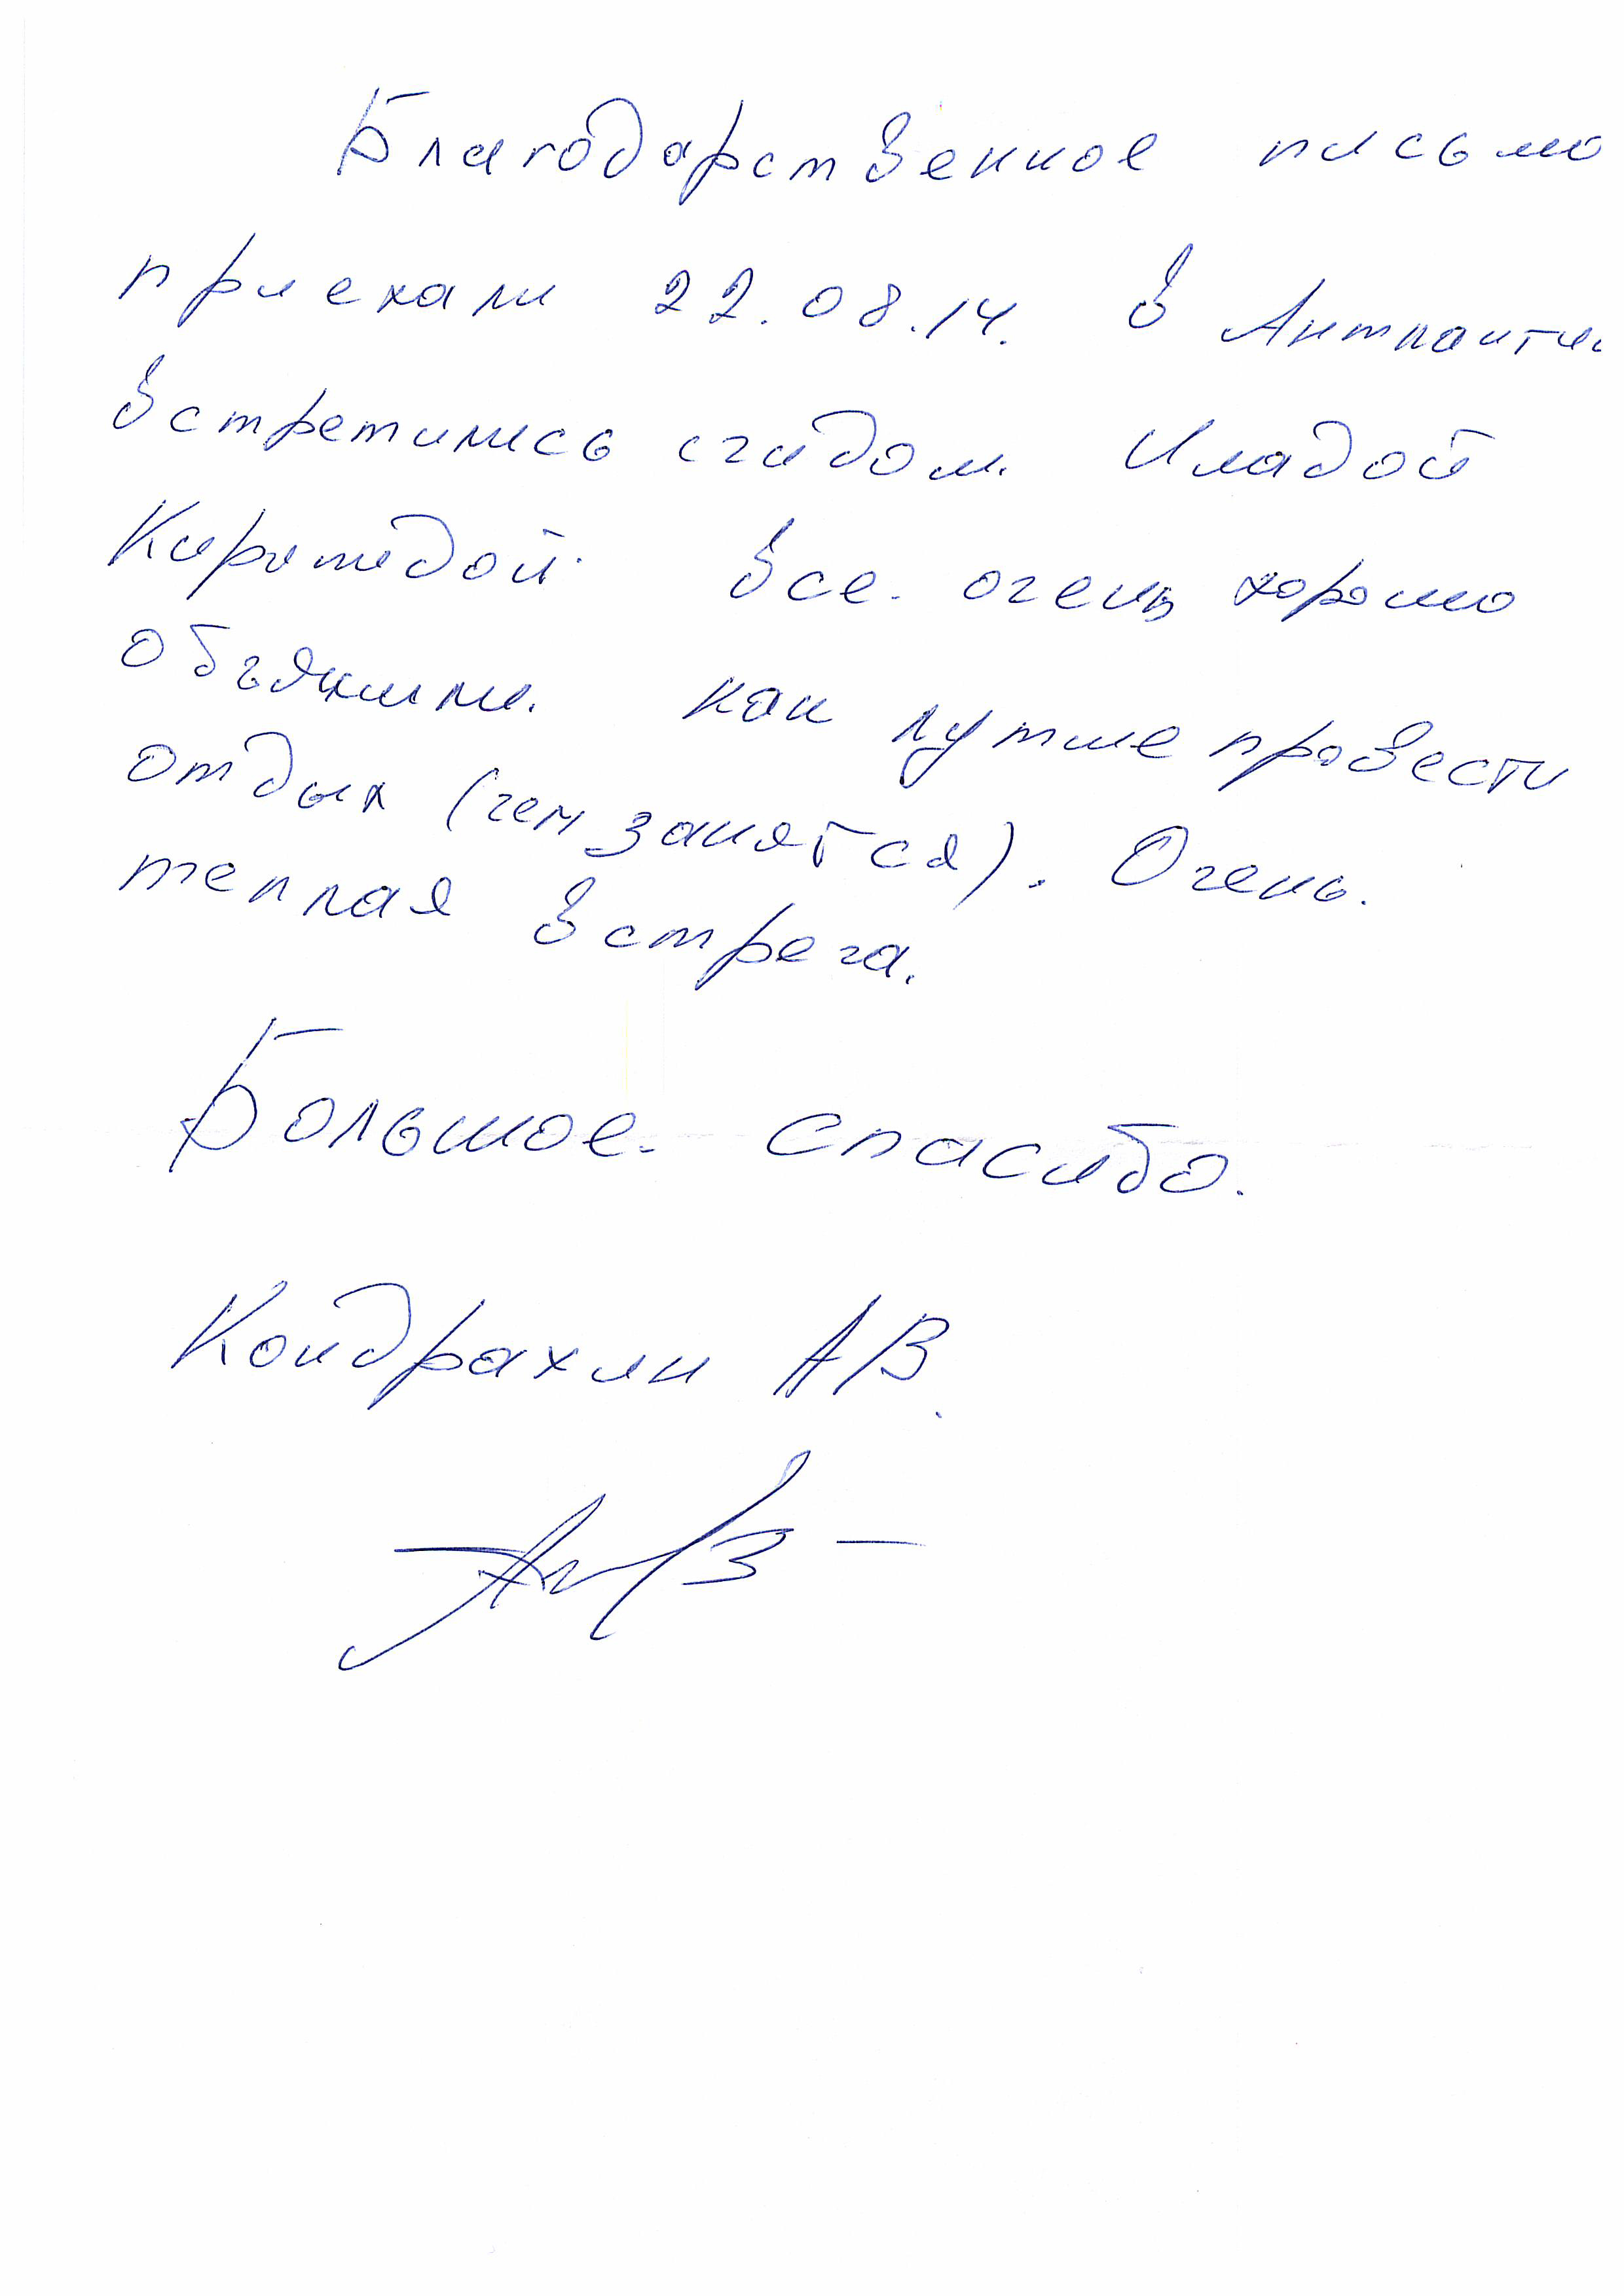 Благодарственное письмо
приехали 22.08.14. в
встретились сгидом. Иладой
все. очень хорошо
объяснили. как лутше провести
отдых (чем занятся). Очень.
теплая встреча.
Большое. спасибо.
Кондрахин АВ.